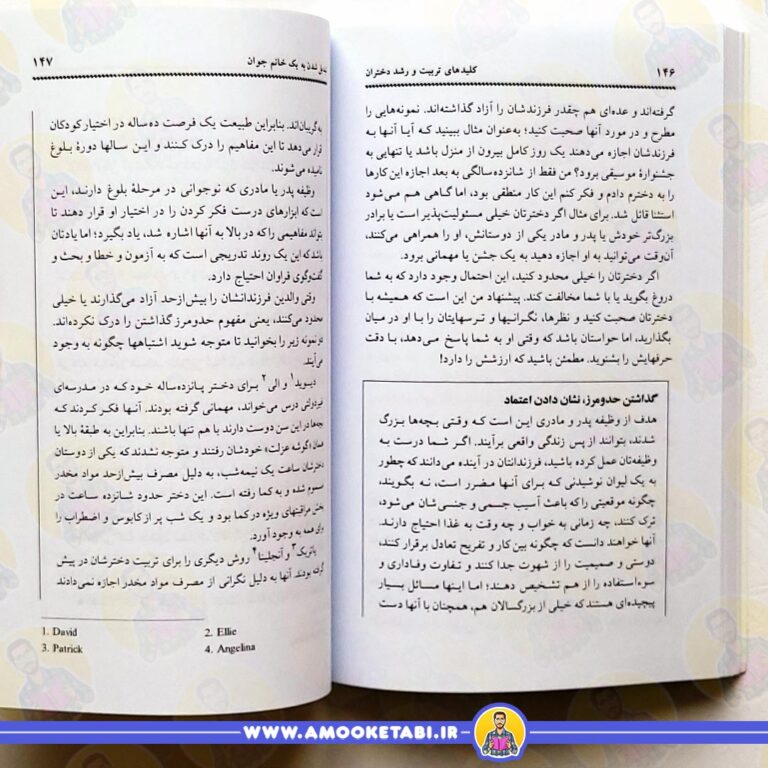 ۱۴۶ کلیدهای تربیت و رشد دختران
گرفته‌اند و عده‌ای هم چقدر فرزندشان را آزاد گذاشته‌اند. نمونه‌هایی را
مطرح و در مورد آنها صحبت کنید؛ به‌عنوان مثال ببینید که آیا آنها به
فرزندشان اجازه می‌دهند یک روز کامل بیرون از منزل باشد یا تنهایی به
جشنوارهٔ موسیقی برود؟ من فقط از شانزده‌سالگی به بعد اجازه این کارها
را به دخترم دادم و فکر کنم این کار منطقی بود، اما گاهی هم می‌شود
استثنا قائل شد. برای مثال اگر دخترتان خیلی مسئولیت‌پذیر است یا برادر
بزرگ‌تر خودش یا پدر و مادر یکی از دوستانش، او را همراهی می‌کنند،
آن‌وقت می‌توانید به او اجازه دهید به یک جشن یا مهمانی برود.
اگر دخترتان را خیلی محدود کنید، این احتمال وجود دارد که به شما
دروغ بگوید یا با شما مخالفت کند. پیشنهاد من این است که همیشه با
دخترتان صحبت کنید و نظرها، نگرانیها و ترسهایتان را با او در میان
بگذارید، اما حواستان باشد که وقتی او به شما پاسخ می‌دهد، با دقت
حرفهایش را بشنوید. مطمئن باشید که ارزشش را دارد!
گذاشتن حدومرز، نشان دادن اعتماد
هدف از وظیفه پدر و مادری این است که وقتی بچه‌ها بزرگ
شدند، بتوانند از پس زندگی واقعی برآیند. اگر شما درست به
وظیفه‌تان عمل کرده باشید، فرزندانتان در آینده می‌دانند که چطور
به یک لیوان نوشیدنی که برای آنها مضرر است، نه بگویند،
چگونه موقعیتی را که باعث آسیب جسمی و جنسی‌شان می‌شود،
ترک کنند، چه زمانی به خواب و چه وقت به غذا احتیاج دارند.
آنها خواهند دانست که چگونه بین کار و تفریح تعادل برقرار کنند،
دوستی و صمیمیت را از شهوت جدا کنند و تفاوت وفاداری و
سوءاستفاده را از هم تشخیص دهند؛ اما اینها مسائل بسیار
پیچیده‌ای هستند که خیلی از بزرگسالان هم، همچنان با آنها دست
شدن به یک خانم جوان ۱۴۷
به گریبان‌اند. بنابراین طبیعت یک فرصت ده‌ساله در اختیار کودکان
قرار می‌دهد تا این مفاهیم را درک کنند و این سالها دورهٔ بلوغ
نامیده می‌شوند.
وظیفه پدر یا مادری که نوجوانی در مرحلهٔ بلوغ دارند، این
است که ابزارهای درست فکر کردن را در اختیار او قرار دهند تا
بتواند مفاهیمی را که در بالا به آنها اشاره شد، یاد بگیرد؛ اما یادتان
باشد که این یک روند تدریجی است که به آزمون و خطا و بحث و
گفت‌وگوی فراوان احتیاج دارد.
وقتی والدین فرزندانشان را بیش‌ازحد آزاد می‌گذارند یا خیلی
محدود می‌کنند، یعنی مفهوم حدومرز گذاشتن را درک نکرده‌اند.
دو نمونه زیر را بخوانید تا متوجه شوید اشتباهها چگونه به وجود
می‌آیند.
دیوید۱ و الی۲ برای دختر پانزده‌ساله خود که در مدرسه‌ای
غیردولتی درس می‌خواند، مهمانی گرفته بودند. آنها فکر کردند که
بچه‌ها در این سن دوست دارند با هم تنها باشند. بنابراین به طبقهٔ بالا یا
همان «گوشه عزلت» خودشان رفتند و متوجه نشدند که یکی از دوستان
دخترشان ساعت یک نیمه‌شب، به دلیل مصرف بیش‌ازحد مواد مخدر
مسموم شده و به کما رفته است. این دختر حدود شانزده ساعت در
بخش مراقبتهای ویژه در کما بود و یک شب پر از کابوس و اضطراب را
برای همه به وجود آورد.
پاتریک۳ و آنجلینا۴ روش دیگری را برای تربیت دخترشان در پیش
گرفته بودند. آنها به دلیل نگرانی از مصرف مواد مخدر اجازه نمی‌دادند
1. David 2. Ellie
3. Patrick 4. Angelina
WWW.AMOOKETABI.IR